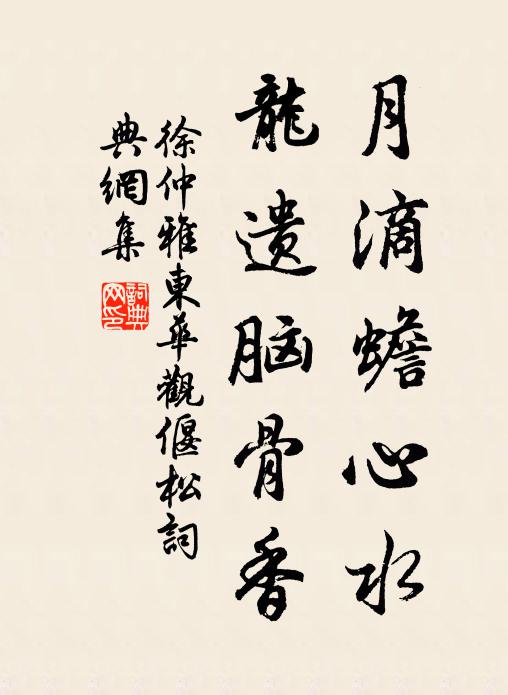 月滴蟾心水
龍遗脑骨香
徐仲雅東華觀偃松詞
典網集
詞典網印